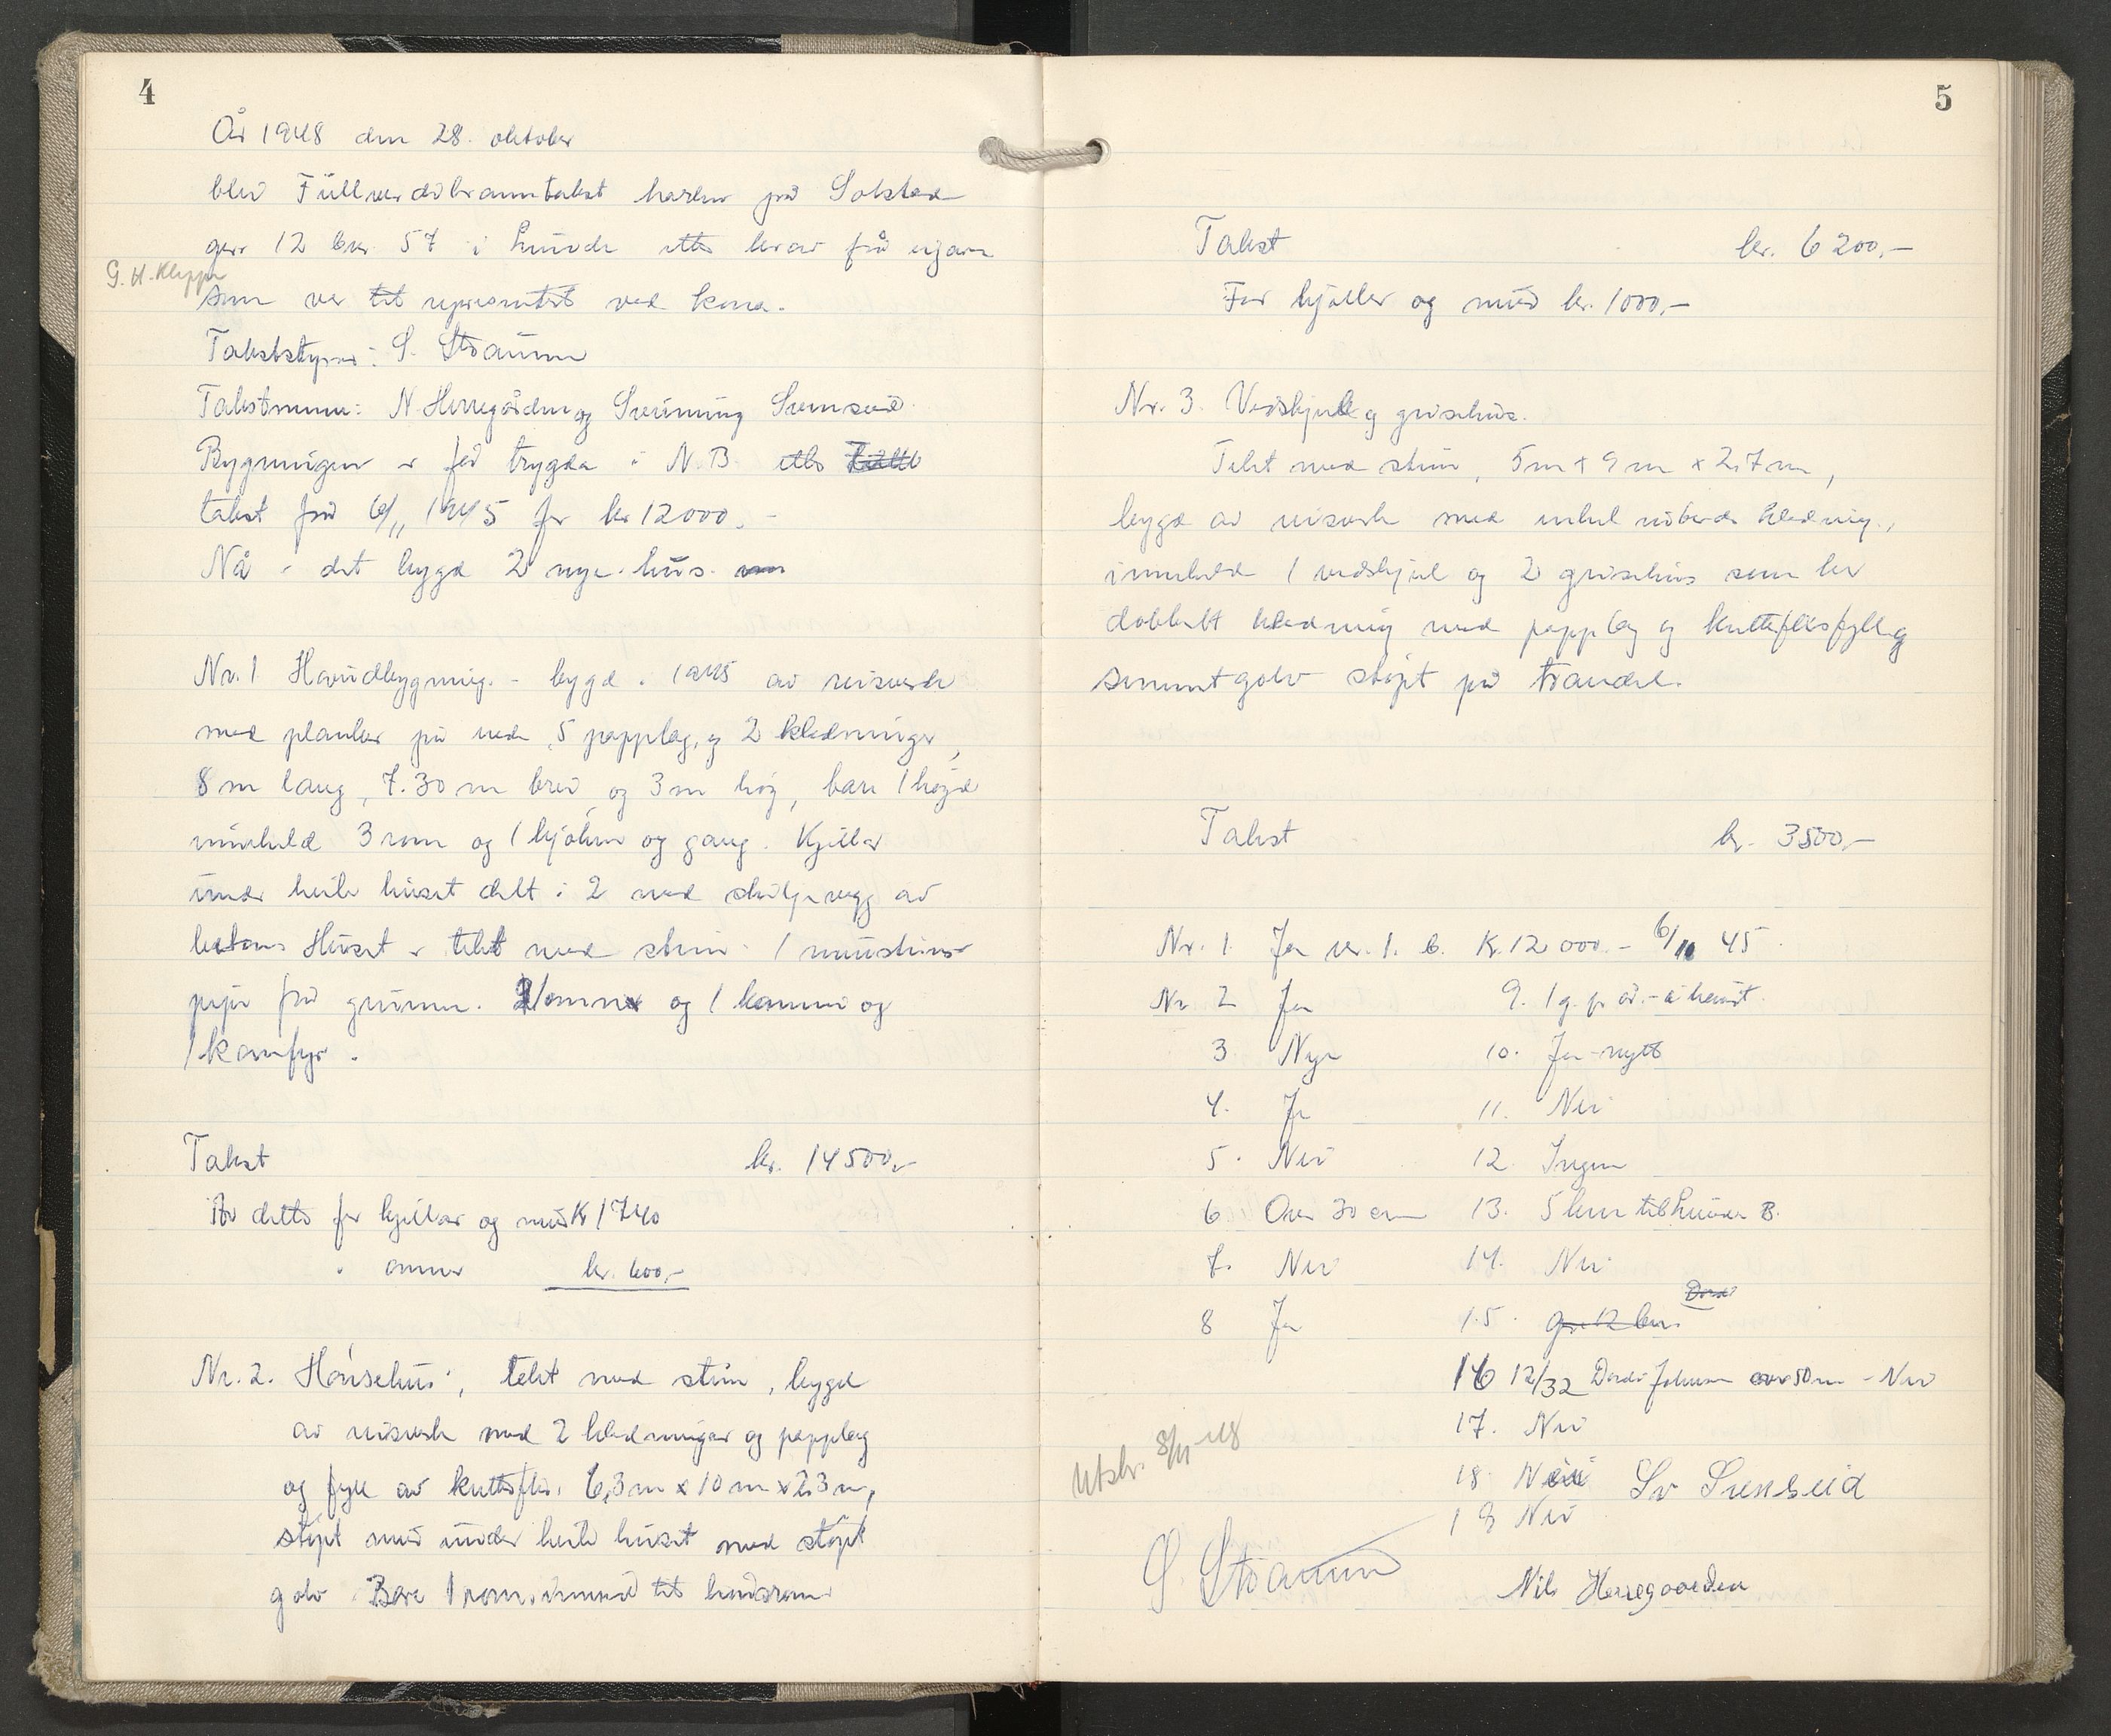 4
År 1948 den 28. oktober
blei Fullverdibranntakst harden på Solstad
gnr 12 bnr. 57 i Lunde etter krav frå eigaren
G. H. Kleppe
som var tit representert ved kona.
Takststyrar: S. Straume
Takstmenn: N. Herregården og Sveinung Svenseid.
Bygningen er før trygda i N. B. etter
takst frå 6/11 1945 for kr 12000.-
Nå er det bygd 2 nye hus.
Nr. 1 Hovudbygning. - bygd i 1945 av reisverk
med plankar på ned, 5 papplag, og 2 kledningar,
8 m lang, 7.30 m brei og 3 m høg, bare 1 høgd
inneheld 3 rom og 1 kjøken og gang. Kjellar
under heile huset delt i 2 med skiljevegg av
betong. Huset er tekt med stein. 1 mursteins-
pipe frå grunnen. 1 omn og 1 kamin og
1 komfyr.
Takst kr. 14500,-
Av dette for kjellar og mur Kr 1740
" omner kr. 600,-
Nr. 2. Hønsehus, tekt med stein, bygd
av reisverk med 2 kledningar og papplag
og fyll av kutterflis. 6,3 m x 10 m x 2,3 m,
støpt mur under heile huset med støpt
golv. Bare 1 rom, innreid tit hønserom
5
Takst kr. 6200,-
For kjeller og mur kr. 1000,-
Nr. 3. Vedskjul og grisehus.
Tekt med stein, 5m x 9 m x 2,7 m,
bygd av reisverk med enkel utvendes kledning,
inneheld 1 vedskjul og 2 grisehus som har
dobbelt kledning med papplag og kutterflisfyll og
sementgolv støpt på traudel.
Takst kr. 3500,-
Nr. 1. Ja nr. 1. b. Kr. 12 000.- 6/11 45.
Nr 2 Ja 9. 1 g. pr år.- i haust.
3 Nye 10. Ja - nytt
4. Ja 11. Nei
5. Nei 12. Ingen
6 Over 30 cm 13. 5 km til Lunde B.
7. Nei 14. Nei
8 Ja 15. gnr 12 bnr.
16 12/32 Dorde Johnsen over 50 m - Nei
17. Nei
Utskr. 8/11-48
18. Nei Sv Svenseid
19 Nei
S. Straume
Nils Herregaarden